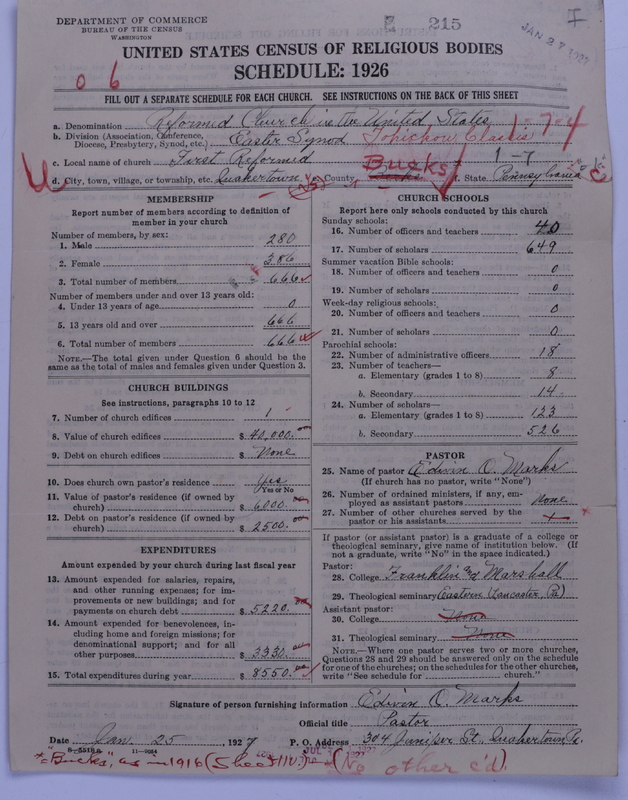 DEPARTMENT OF COMMERCE
BUREAU OF THE CENSUS
WASHINGTON
215
JAN 27 1927
I
UNITED STATES CENSUS OF RELIGIOUS BODIES
SCHEDULE: 1926
0 6
FILL OUT A SEPARATE SCHEDULE FOR EACH CHURCH. SEE INSTRUCTIONS ON THE BACK OF THIS SHEET
a. Denomination Reformed Church in the United States
1-7-4
b. Division (Association, Conference, Diocese, Presbytery, Synod, etc.) Easter Synod Tohickon Classis
c. Local name of church First Reformed
Bucks
1-7
d. City, town, village, or township, etc. Quakertown e. County Bucks f. State Pennsylvania
MEMBERSHIP
Report number of members according to definition of
member in your church
Number of members, by sex:
1. Male 280
2. Female 386
3. Total number of members 666
Number of members under and over 13 years old:
4. Under 13 years of age 0
5. 13 years old and over 666
6. Total number of members 666
NOTE.—The total given under Question 6 should be
same as the total of males and females given under Question 3.
CHURCH BUILDINGS
See instructions, paragraphs 10 to 12
7. Number of church edifices 1
8. Value of church edifices $ 40,000.00
9. Debt on church edifices $ None
10. Does church own pastor's residence Yes
Yes or No
11. Value of pastor's residence (if owned by
church) $ 6000
12. Debt on pastor's residence (if owned by
church) $ 2500.
EXPENDITURES
Amount expended by your church during last fiscal year
13. Amount expended for salaries, repairs,
and other running expenses; for im-
provements or new buildings; and for
payments on church debt $ 5220.
14. Amount expended for benevolences, in-
cluding home and foreign missions; for
denominational support; and for all
other purposes $ 3330.
15. Total expenditures during year $ 8550.
CHURCH SCHOOLS
Report here only schools conducted by this church
Sunday schools:
16. Number of officers and teachers 40
17. Number of scholars 649
Summer vacation Bible schools:
18. Number of officers and teachers 0
19. Number of scholars 0
Week-day religious schools:
20. Number of officers and teachers 0
21. Number of scholars 0
Parochial schools:
22. Number of administrative officers 18
23. Number of teachers—
a. Elementary (grades 1 to 8) 8
b. Secondary 14
24. Number of scholars—
a. Elementary (grades 1 to 8) 123
b. Secondary 526
PASTOR
25. Name of pastor Edwin O. Marks
(If church has no pastor, write "None")
26. Number of ordained ministers, if any, em-
ployed as assistant pastors None
27. Number of other churches served by the
pastor or his assistants
If pastor (or assistant pastor) is a graduate of a college or
theological seminary, give name of institution below. (If
not a graduate, write "No" in the space indicated.)
Pastor:
28. College Franklin and Marshall
29. Theological seminary Eastern (Lancaster, Pa)
Assistant pastor:
30. College None
31. Theological seminary None
NOTE.—Where one pastor serves two or more churches,
Questions 28 and 29 should be answered only on the schedule
for one of the churches; on the schedules for the other churches,
write "See schedule for church."
Signature of person furnishing information Edwin O. Marks
Official title Pastor
Date Jan. 25, 1927 P. O. Address 304 Juniper St., Quakertown Pa.
8-5518 a 11-9084
*=Bucks, as in 1916 (Sheet IIV) (No other c'd)